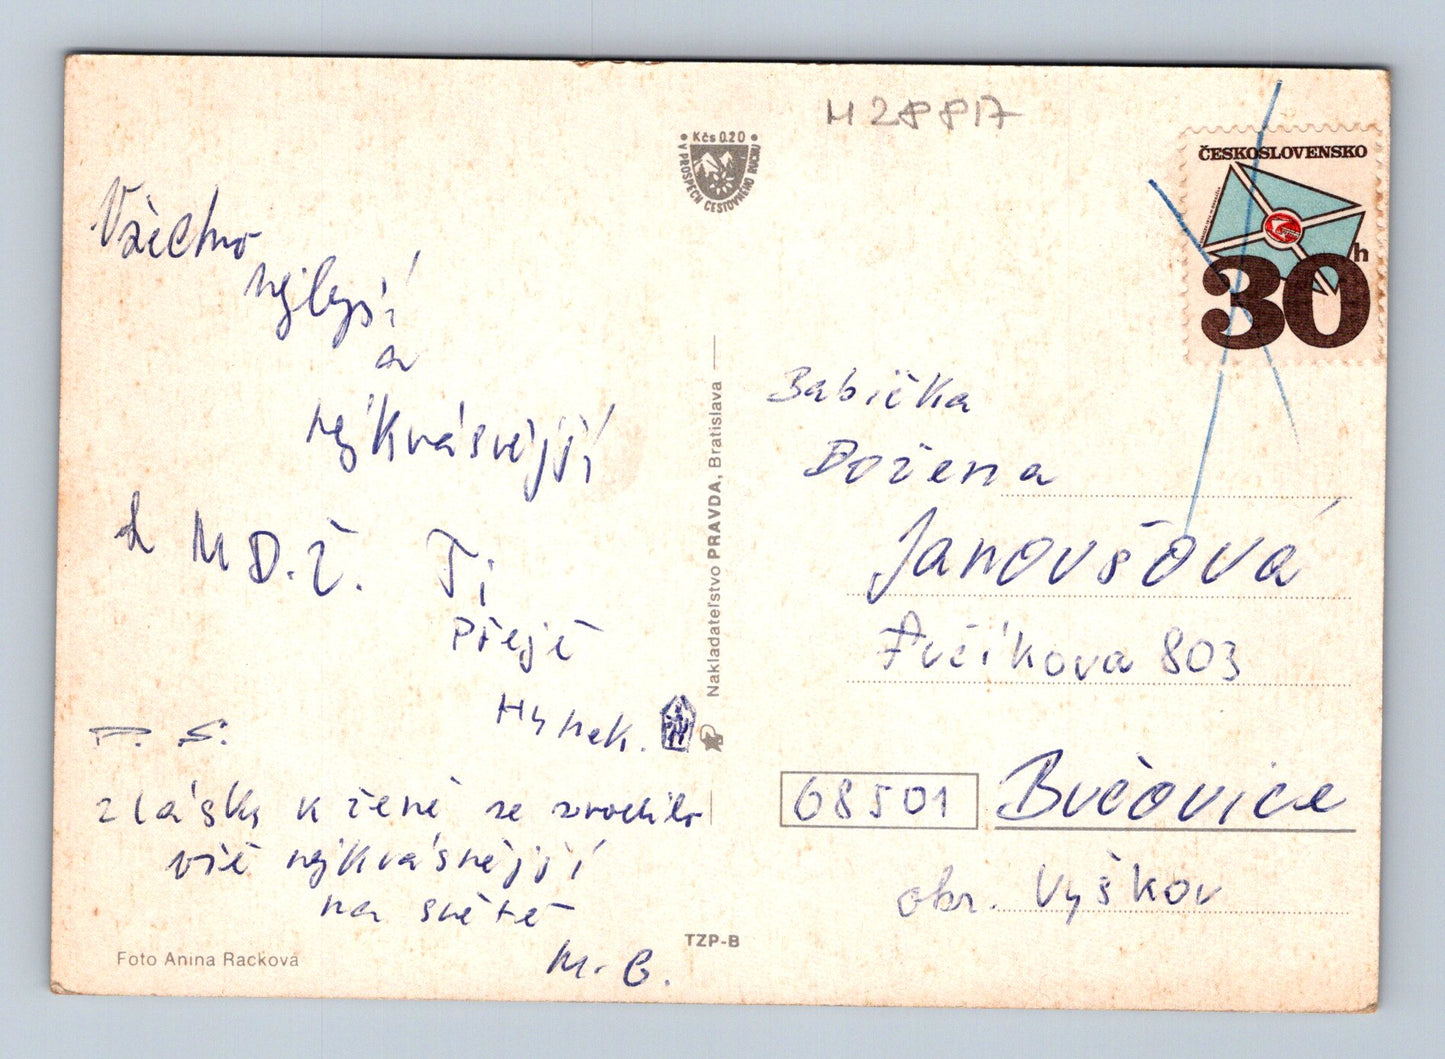 H 28817
• Kčs 0.20 •
V PROSPECH CESTOVNÉHO RUCHU
ČESKOSLOVENSKO
30 h
Všechno
nejlepší
a
nejkrásnější
k M D. Ž. Ti
Přeje
Hynek.
P. S.
z lásky k ženě se zrodilo
vše nejkrásnější
na světě
M. G.
Foto Anina Racková
Nakladateľstvo PRAVDA, Bratislava
TZP-B
Babička
Božena
Janoušová
Fučíkova 803
68501 Bučovice
okr. Vyškov